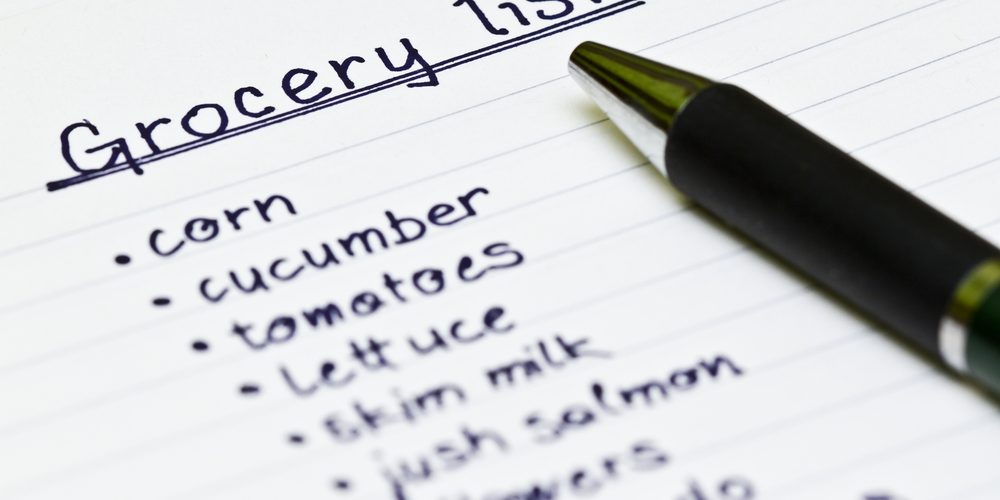 Grocery list
• corn
• cucumber
• tomatoes
• lettuce
• skim milk
• jush salmon